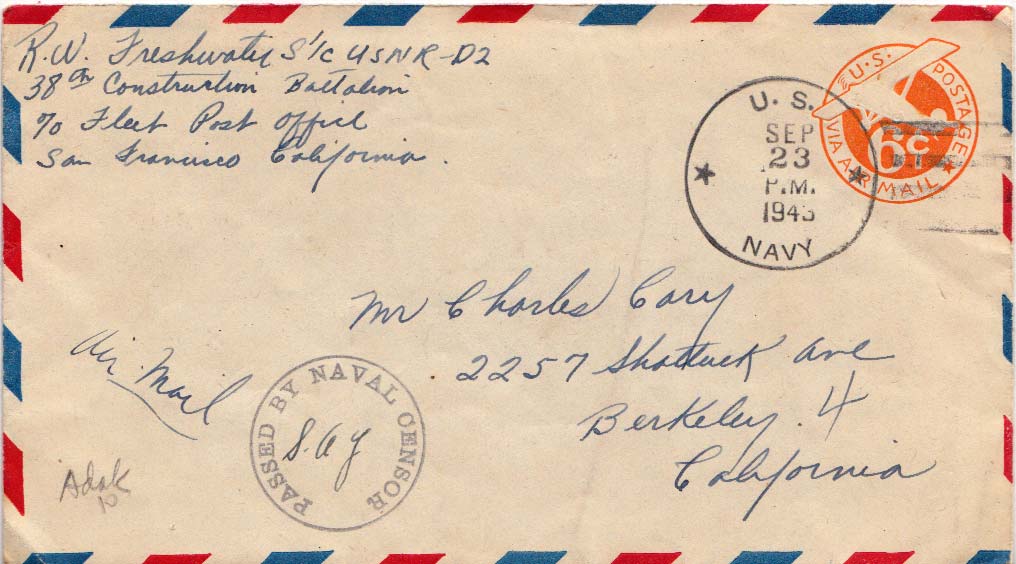 R.W. Freshwater S1/c USNR-D2
38th Construction Battalion
c/o Fleet Post Office
San Francisco California.
U.S.
SEP
23
P.M.
1943
NAVY
U.S. POSTAGE
6c
VIA AIR MAIL
Mr Charles Cary
2257 Shattuck Ave
Berkeley. 4
California
Air Mail
PASSED BY NAVAL CENSOR
Adak